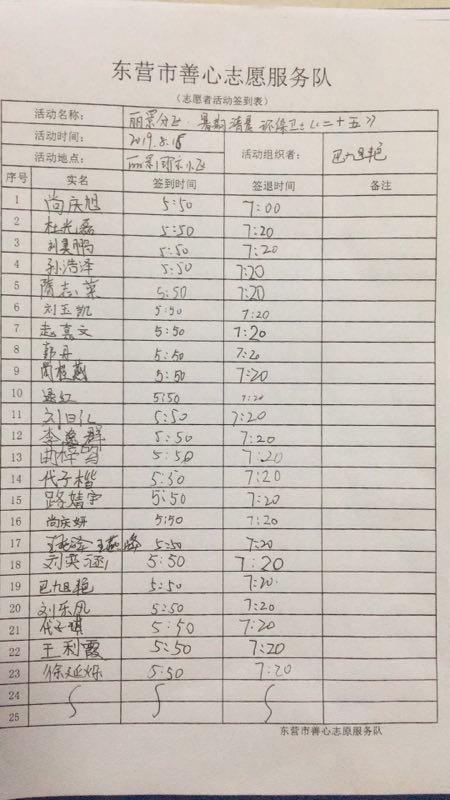 东营市善心志愿服务队
（志愿者活动签到表）
活动名称： 丽景分队：暑期清晨环保卫士《二十五》
活动时间： 2019.8.18 活动组织者： 巴九艳
活动地点： 丽景
序号 实名 签到时间 签退时间 备注
1 尚庆旭 5:50 7:00
2 杜光磊 5:50 7:20
3 刘昊鹏 5:50 7:20
4 孙浩泽 5:50 7:20
5 隋志荣 5:50 7:20
6 刘玉凯 5:50 7:20
7 赵嘉文 5:50 7:20
8 郭丹 5:50 7:20
9 5:50 7:20
10 5:50 7:20
11 5:50 7:20
12 5:50 7:20
13 5:50 7:20
14 代子楷 5:50 7:20
15 路婧宇 5:50 7:20
16 尚庆妍 5:50 7:20
17 5:50 7:20
18 刘英涵 5:50 7:20
19 5:50 7:20
20 刘乐风 5:50 7:20
21 代子琪 5:50 7:20
22 王利霞 5:50 7:20
23 徐延烁 5:50 7:20
24
25
东营市善心志愿服务队